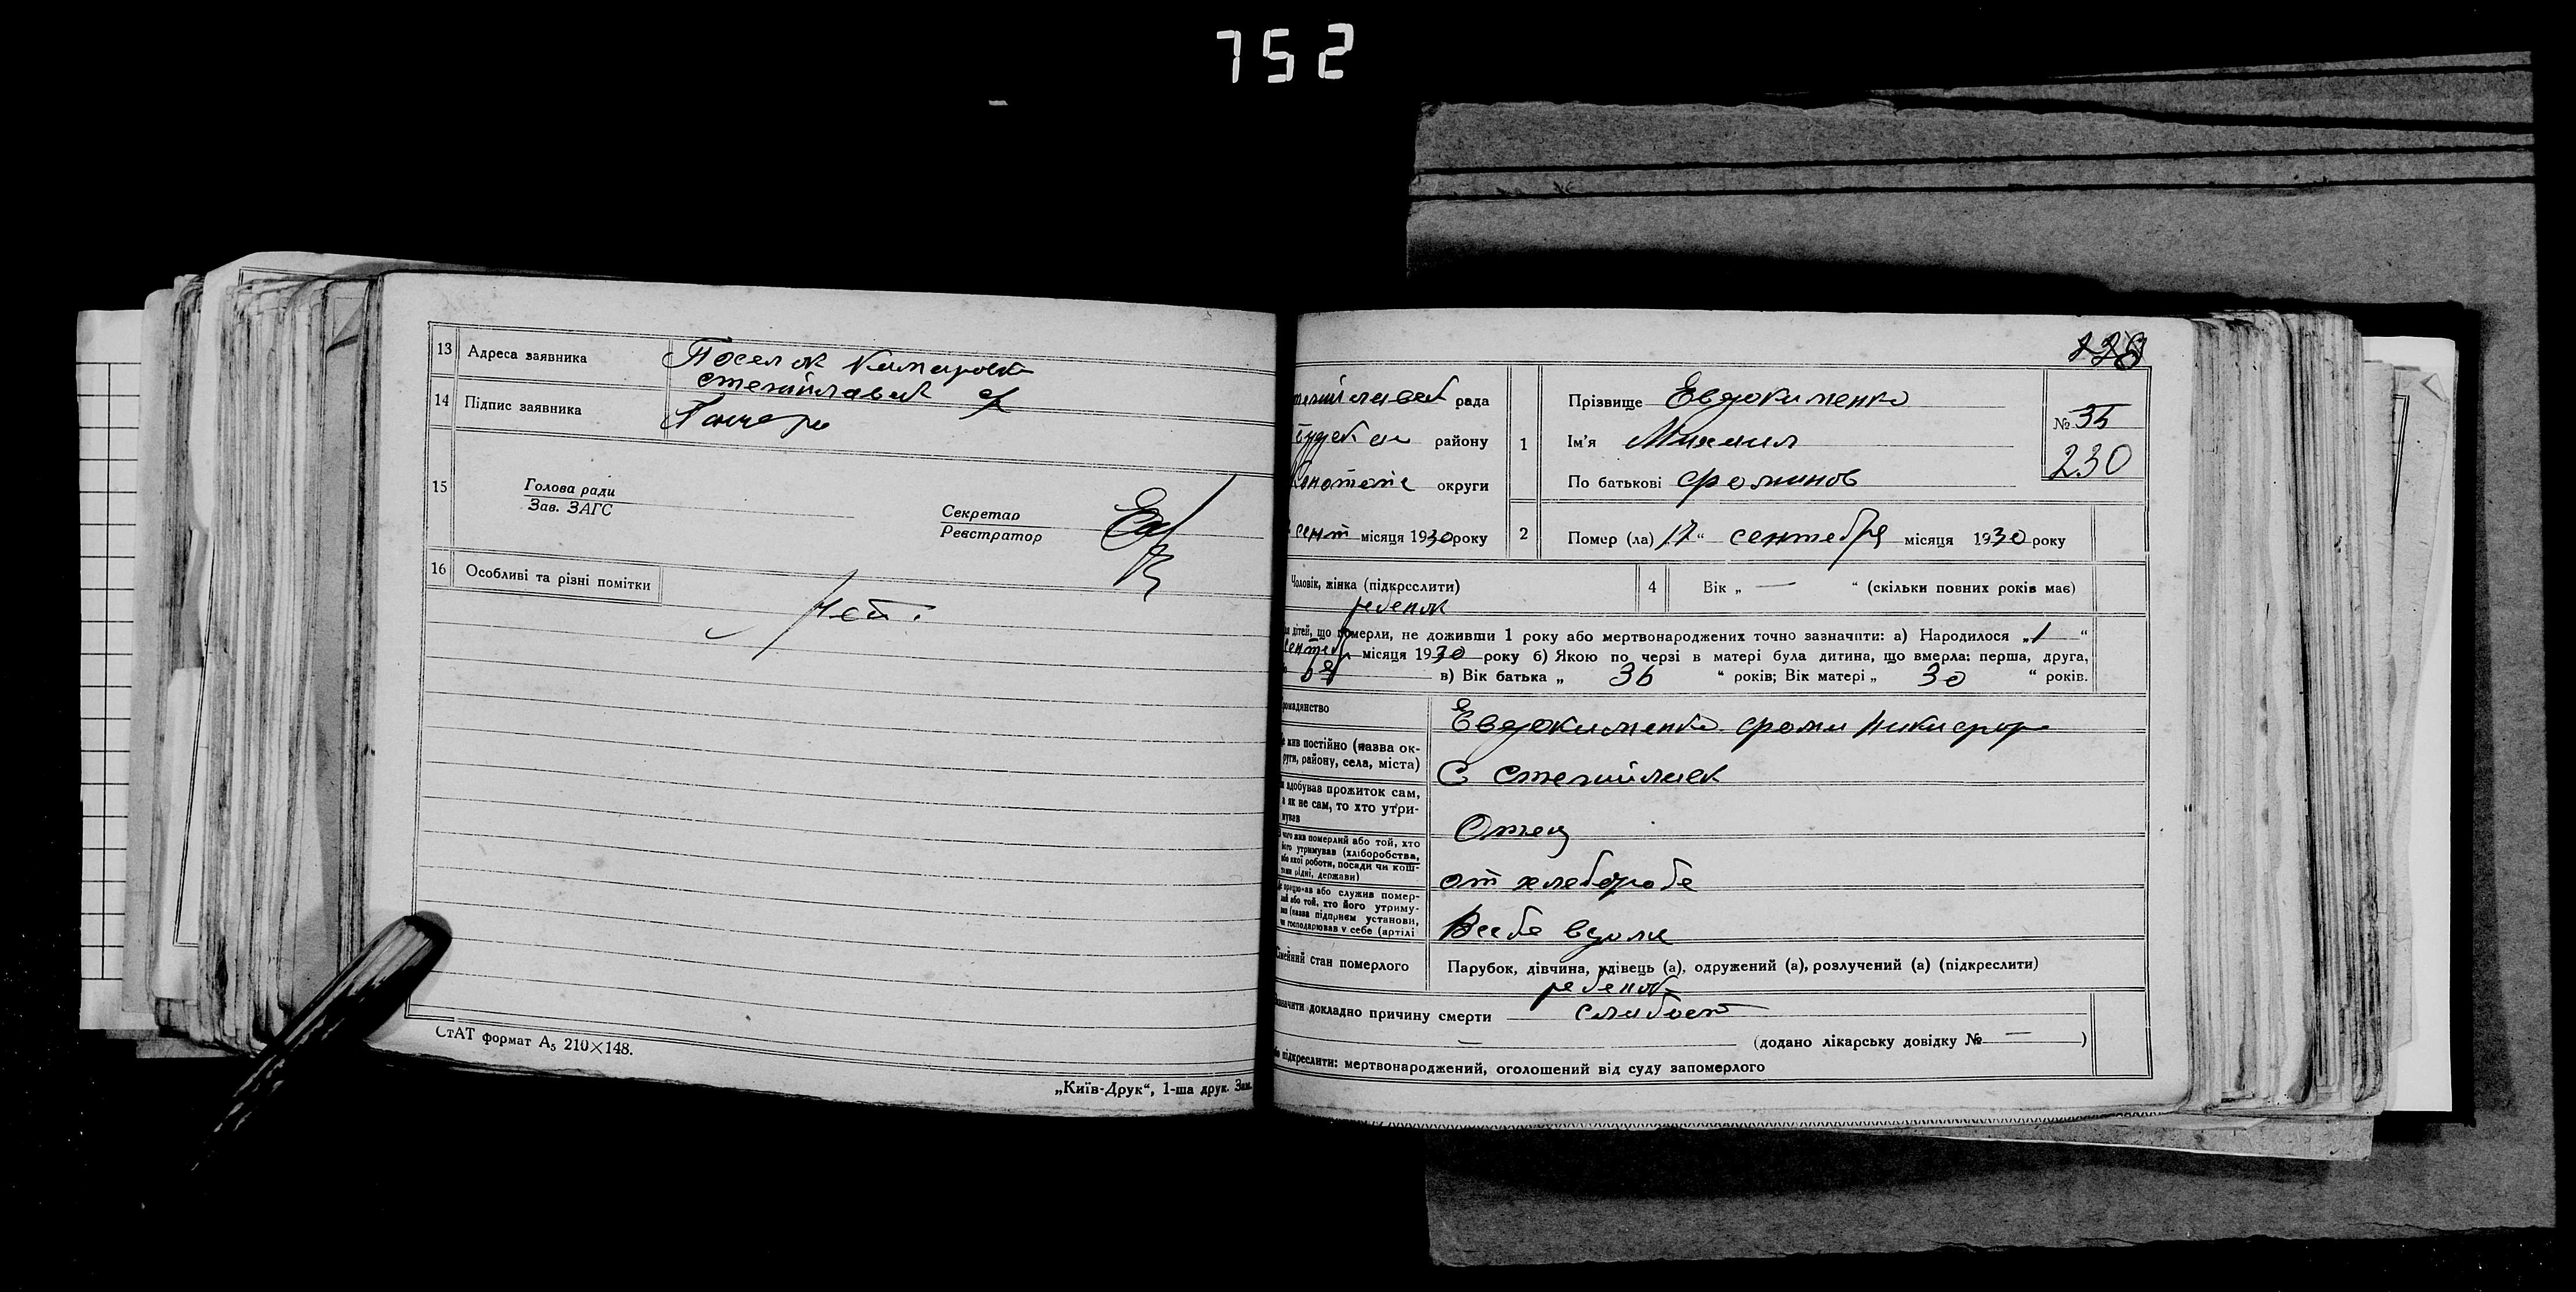 752
13 Адреса заявника Поселок
14 Підпис заявника Гончар
15 Голова ради
Зав. ЗАГС
Секретар
Реєстратор
16 Особливі та різні помітки
Нет.
СтАТ формат А5 210×148.
„Київ-Друк“, 1-ша друк. Зам.
228
рада
району
округи
сент місяця 1930 року
1 Прізвище Евдокименко
Ім'я Михаил
По батькові Фоминов
№ 35
230
2 Помер (ла) 17 “ сентебря місяця 1930 року
Чоловік, жінка (підкреслити)
ребенок
4 Вік „ — “ (скільки повних років має)
дітей, що померли, не доживши 1 року або мертвонароджених точно зазначити: а) Народилося „1“
місяця 1930 року б) Якою по черзі в матері була дитина, що вмерла: перша, друга,
в) Вік батька „ 36 “ років; Вік матері „ 30 “ років.
громадянство Евдокименко Фома Никифор
жив постійно (назва ок-
руги, району, села, міста) С
здобував прожиток сам,
а як не сам, то хто утри-
мував Отец
чого жив померлий або той, хто
його утримував (хліборобства,
або якої роботи, посади чи кош-
тами рідні, держави) от хлебороба
працював або служив помер-
лий або той, хто його утриму-
вав (назва підприєм установи,
чи господарював у себе (артілі
Сімейний стан померлого Парубок, дівчина, удівець (а), одружений (а), розлучений (а) (підкреслити)
ребенок
зазначити докладно причину смерти слабост
— (додано лікарську довідку № — )
підкреслити: мертвонароджений, оголошений від суду запомерлого